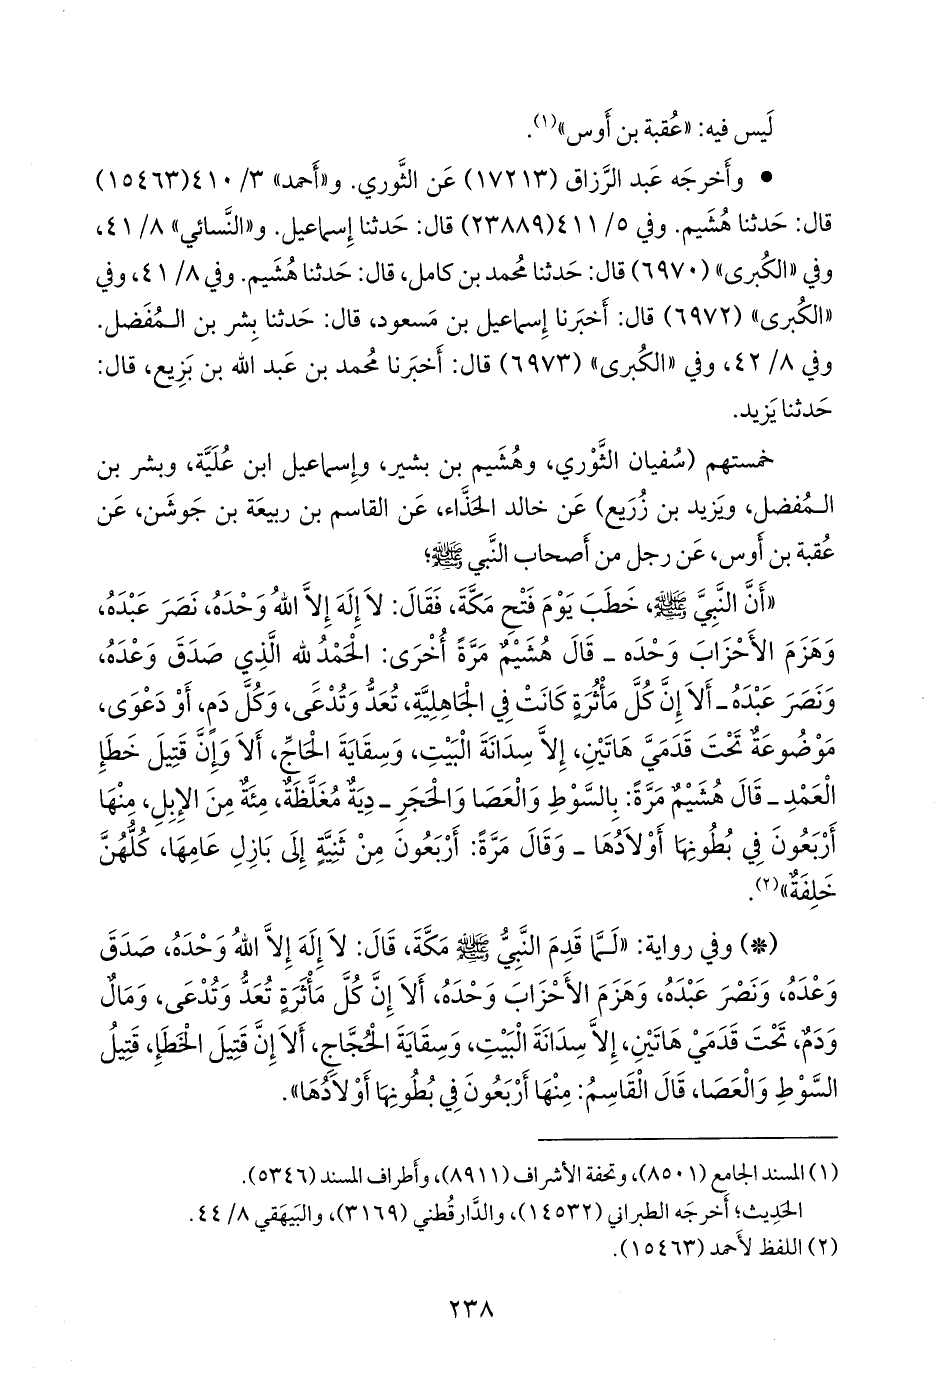 لَيس فيه: «عُقبة بن أَوس»(١).
• وأَخرجَه عَبد الرَّزاق (١٧٢١٣) عَن الثَّوري. و«أَحمد» ٣/ ٤١٠(١٥٤٦٣)
قال: حَدثنا هُشَيم. وفي ٥/ ٤١١(٢٣٨٨٩) قال: حَدثنا إِسماعيل. و«النَّسائي» ٨/ ٤١،
وفي «الكُبرى» (٦٩٧٠) قال: حَدثنا مُحمد بن كامل، قال: حَدثنا هُشَيم. وفي ٨/ ٤١، وفي
«الكُبرى» (٦٩٧٢) قال: أَخبَرنا إِسماعيل بن مَسعود، قال: حَدثنا بِشر بن الـمُفَضل.
وفي ٨/ ٤٢، وفي «الكُبرى» (٦٩٧٣) قال: أَخبَرنا مُحمد بن عَبد الله بن بَزِيع، قال:
حَدثنا يَزيد.
خمستهم (سُفيان الثَّوْري، وهُشَيم بن بشير، وإِسماعيل ابن عُلَيَّة، وبشر بن
الـمُفضل، ويَزيد بن زُرَيع) عَن خالد الحَذَّاء، عَن القاسم بن ربيعَة بن جَوشَن، عَن
عُقبة بن أَوس، عَن رجل من أَصحاب النَّبي ﷺ؛
«أَنَّ النَّبِيَّ ﷺ، خَطَبَ يَوْمَ فَتْحِ مَكَّةَ، فَقَالَ: لاَ إِلَهَ إِلاَّ اللهُ وَحْدَهُ، نَصَرَ عَبْدَهُ،
وَهَزَمَ الأَحْزَابَ وَحْدَه ـ قَالَ هُشَيْمٌ مَرَّةً أُخْرَى: الحَمْدُ لله الَّذِي صَدَقَ وَعْدَهُ،
وَنَصَرَ عَبْدَهُ ـ أَلاَ إِنَّ كُلَّ مَأْثُرَةٍ كَانَتْ فِي الجَاهِلِيَّةِ، تُعَدُّ وَتُدْعَى، وَكُلَّ دَمٍ، أَوْ دَعْوَى،
مَوْضُوعَةٌ تَحْتَ قَدَمَيَّ هَاتَيْنِ، إِلاَّ سِدَانَةَ الْبَيْتِ، وَسِقَايَةَ الْحَاجِّ، أَلاَ وَإِنَّ قَتِيلَ خَطَإِ
الْعَمْدِ ـ قَالَ هُشَيْمٌ مَرَّةً: بِالسَّوْطِ وَالْعَصَا وَالْحَجَرِ ـ دِيَةٌ مُغَلَّظَةٌ، مِئَةٌ مِنَ الإِبِلِ، مِنْهَا
أَرْبَعُونَ فِي بُطُونِهَا أَوْلاَدُهَا ـ وَقَالَ مَرَّةً: أَرْبَعُونَ مِنْ ثَنِيَّةٍ إِلَى بَازِلِ عَامِهَا، كُلُّهُنَّ
خَلِفَةٌ»(٢).
(*) وفي رواية: «لَـمَّا قَدِمَ النَّبِيُّ ﷺ مَكَّةَ، قَالَ: لاَ إِلَهَ إِلاَّ اللهُ وَحْدَهُ، صَدَقَ
وَعْدَهُ، وَنَصْرَ عَبْدَهُ، وَهَزَمَ الأَحْزَابَ وَحْدَهُ، أَلاَ إِنَّ كُلَّ مَأْثَرَةٍ تُعَدُّ وَتُدْعَى، وَمَالٌ
وَدَمٌ، تَحْتَ قَدَمَيْ هَاتَيْنِ، إِلاَّ سِدَانَةَ الْبَيْتِ، وَسِقَايَةَ الْحُجَّاجِ، أَلاَ إِنَّ قَتِيلَ الخَطَإِ، قَتِيلُ
السَّوْطِ وَالْعَصَا، قَالَ الْقَاسِمُ: مِنْهَا أَرْبَعُونَ فِي بُطُونِهَا أَوْلاَدُهَا».
(١) المسند الجامع (٨٥٠١)، وتحفة الأشراف (٨٩١١)، وأَطراف المسند (٥٣٤٦).
الحَدِيث؛ أَخرجَه الطبراني (١٤٥٣٢)، والدَّارقُطني (٣١٦٩)، والبَيهَقي ٨/ ٤٤.
(٢) اللفظ لأَحمد (١٥٤٦٣).
٢٣٨